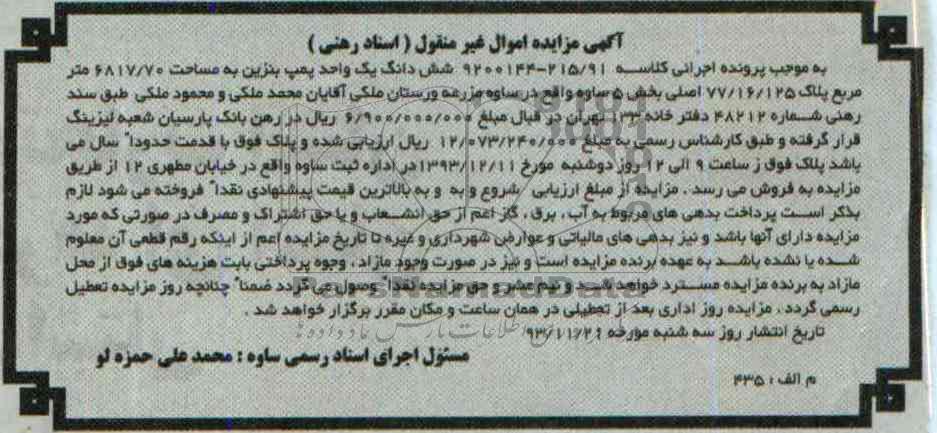 آگهی مزایده اموال غیر منقول ( اسناد رهنی )
به موجب پرونده اجرائی کلاسه ۹۲۰۰۱۴۴-۲۱۵/۹۱ شش دانگ یک واحد پمپ بنزین به مساحت ۶۸۱۷/۷۰ متر
مربع پلاک ۷۷/۱۶/۱۲۵ اصلی بخش ۵ ساوه واقع در ساوه مزرعه ورستان ملکی آقایان محمد ملکی و محمود ملکی طبق سند
رهنی شماره ۴۸۲۱۲ دفتر خانه ۳۳ تهران در قبال مبلغ ۶/۹۰۰/۰۰۰/۰۰۰ ریال در رهن بانک پارسیان شعبه لیزینگ
قرار گرفته و طبق کارشناس رسمی به مبلغ ۱۲/۰۷۳/۲۴۰/۰۰۰ ریال ارزیابی شده و پلاک فوق با قدمت حدودا" سال می
باشد پلاک فوق ز ساعت ۹ الی ۱۲ روز دوشنبه مورخ ۱۳۹۳/۱۲/۱۱ در اداره ثبت ساوه واقع در خیابان مطهری ۱۲ از طریق
مزایده به فروش می رسد . مزایده از مبلغ ارزیابی شروع و به و به بالاترین قیمت پیشنهادی نقدا" فروخته می شود لازم
بذکر است پرداخت بدهی های مربوط به آب ، برق ، گاز اعم از حق انشعاب و یا حق اشتراک و مصرف در صورتی که مورد
مزایده دارای آنها باشد و نیز بدهی های مالیاتی و عوارض شهرداری و غیره تا تاریخ مزایده اعم از اینکه رقم قطعی آن معلوم
شده یا نشده باشد به عهده برنده مزایده است و نیز در صورت وجود مازاد ، وجوه پرداختی بابت هزینه های فوق از محل
مازاد به برنده مزایده مسترد خواهد شد و نیم عشر و حق مزایده نقدا" وصول می گردد ضمنا" چنانچه روز مزایده تعطیل
رسمی گردد ، مزایده روز اداری بعد از تعطیلی در همان ساعت و مکان مقرر برگزار خواهد شد .
تاریخ انتشار روز سه شنبه مورخه ۹۳/۱۱/۲۱
مسئول اجرای اسناد رسمی ساوه : محمد علی حمزه لو
م الف : ۴۳۵
ParsNamadData